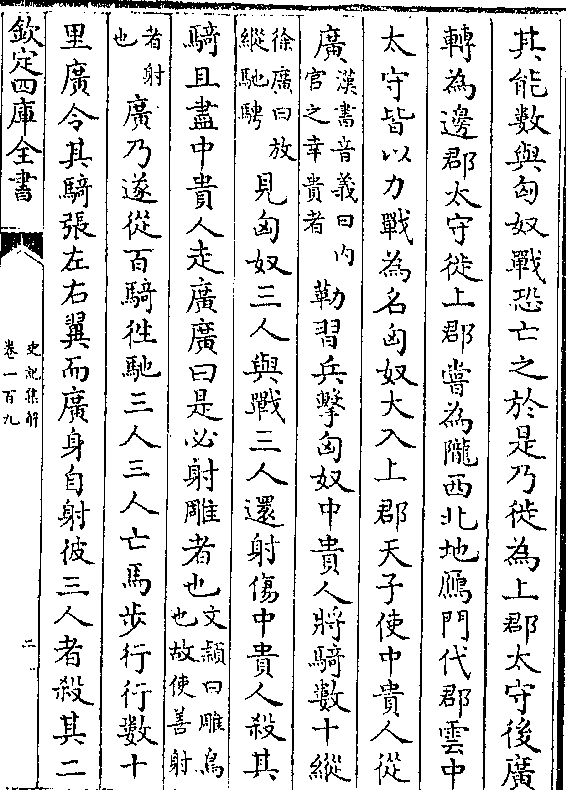 其能數與匈奴戰恐亡之於是乃徙為上郡太守後廣
轉為邊郡太守徙上郡嘗為隴西北地鴈門代郡雲中
太守皆以力戰為名匈奴大入上郡天子使中貴人從
廣漢書音義曰内官之幸貴者勒習兵擊匈奴中貴人將騎數十縱
徐廣曰放縱馳騁見匈奴三人與戰三人還射傷中貴人殺其
騎且盡中貴人走廣廣曰是必射雕者也文頴曰雕鳥也故使善射
者射也廣乃遂從百騎徃馳三人三人亡馬步行行數十
里廣令其騎張左右翼而廣身自射彼三人者殺其二
欽定四庫全書
史記集解
卷一百九
二